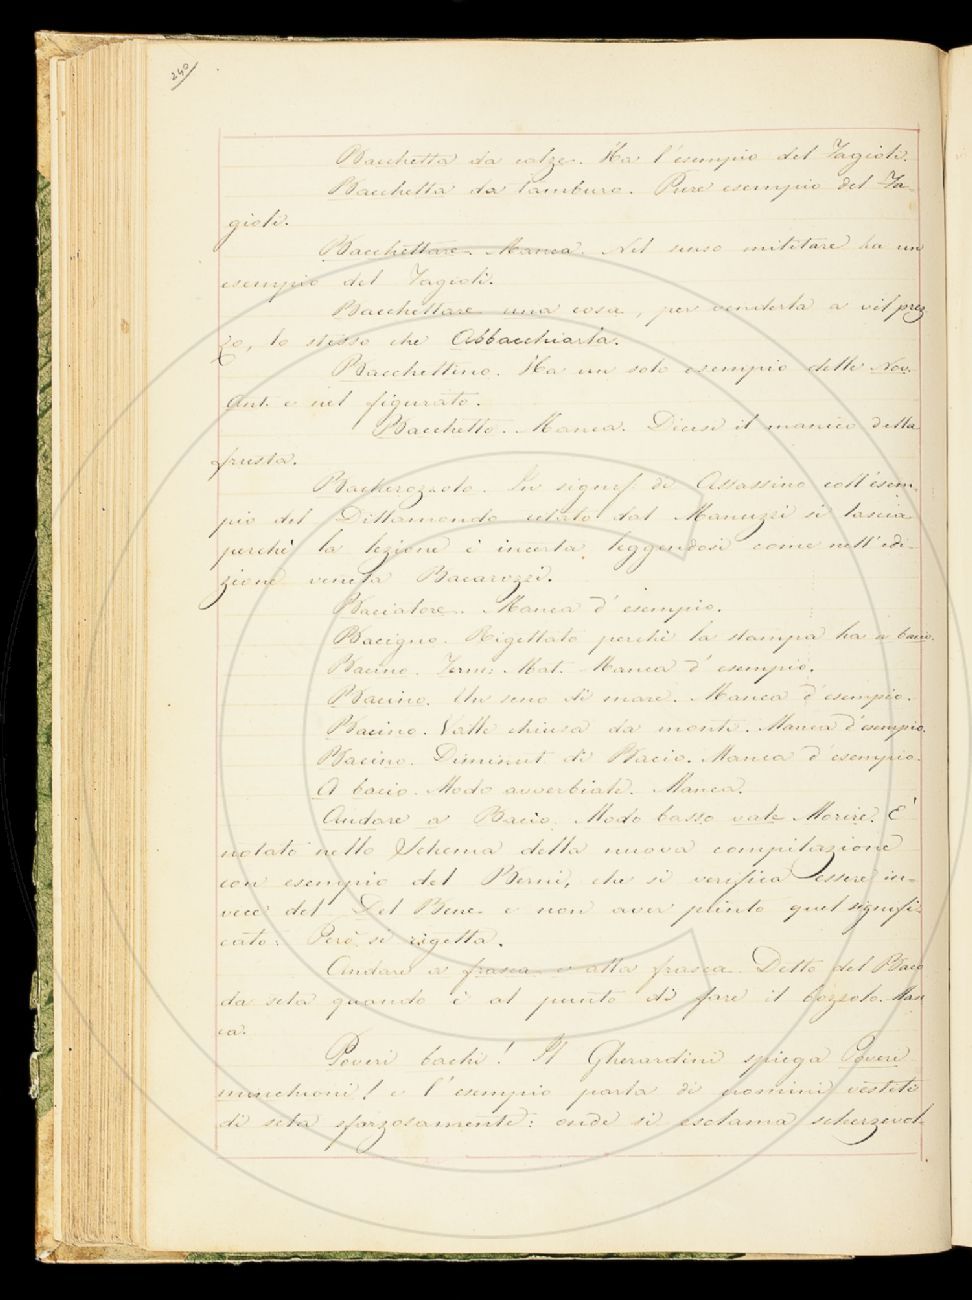 240
Bacchetta da calze. Ha l'esempio del Fagioli.
Bacchetta da tamburo. Pure esempio del Fa-
gioli.
Bacchettare. Manca. Nel senso militare ha un
esempio del Fagioli.
Bacchettare una cosa, per venderla a vil prez
zo, lo stesso che Abbacchiarla.
Bacchettino. Ha un solo esempio delle Nov.
Ant. e nel figurato.
Bacchetto. Manca. Dicesi il manico della
frusta.
Bacherozzolo. In signif. di Assassino coll'esem-
pio del Dittamondo citato dal Manuzzi si lascia
perchè la lezione è incerta, leggendosi come nell'edi-
zione veneta Bacarozzi.
Baciatore. Manca d'esempio.
Bacigno. Rigettato perchè la stampa ha a bacìo.
Bacino. Term: Mat. Manca d'esempio.
Bacino. Un seno di mare. Manca d'esempio.
Bacino. Valle chiusa da monti. Manca d'esempio.
Bacino. Diminut. di Bacio. Manca d'esempio.
A bacio. Modo avverbiale. Manca.
Andare a Bacio. Modo basso vale Morire. È
notato nello Schema della nuova compilazione
con esempio del Berni, che si verifica essere in-
vece del Del Bene e non aver punto quel signifi-
cato: Però si rigetta.
Andare a frasca e alla frasca. Detto del Baco
da seta quando è al punto di fare il bozzolo. Man
ca.
Poveri bachi! Il Gherardini spiega Poveri
minchioni! e l'esempio parla di uomini vestiti
di seta sforzosamente: onde si esclama scherzevol-